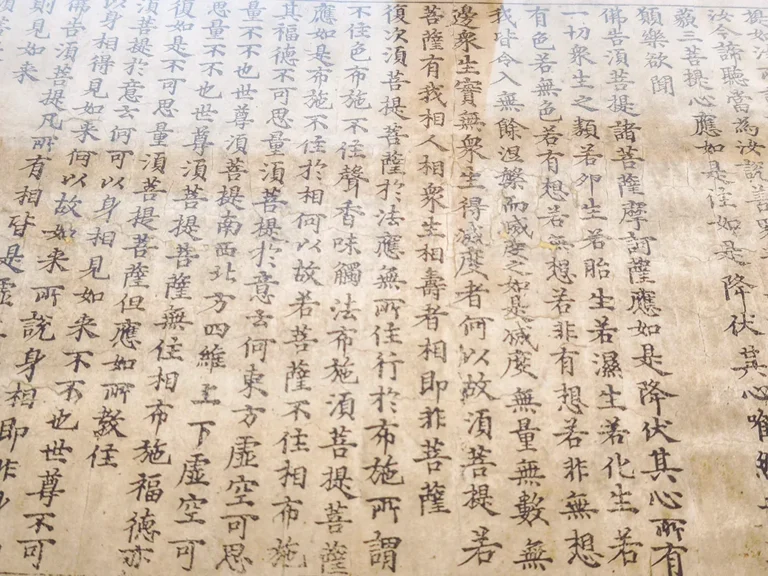 汝今諦聽當為汝說善男
藐三菩提心應如是住如是降伏其心唯然
願樂欲聞
佛告須菩提諸菩薩摩訶薩應如是降伏其心所有
一切衆生之類若卵生若胎生若濕生若化生若
有色若無色若有想若無想若非有想若非無想
我皆令入無餘涅槃而滅度之如是滅度無量無數無
邊衆生實無衆生得滅度者何以故須菩提若
菩薩有我相人相衆生相壽者相即非菩薩
復次須菩提菩薩於法應無所住行於布施所謂
不住色布施不住聲香味觸法布施須菩提菩薩
應如是布施不住於相何以故若菩薩不住相布施
其福德不可思量須菩提於意云何東方虛空可思
量不不也世尊須菩提南西北方四維上下虛空可
思量不不也世尊須菩提菩薩無住相布施福德亦
復如是不可思量須菩提菩薩但應如所教住
須菩提於意云何可以身相見如來不不也世尊不可
以身相得見如來何以故如來所說身相即非身
佛告須菩提凡所有相皆是虛
則見如來